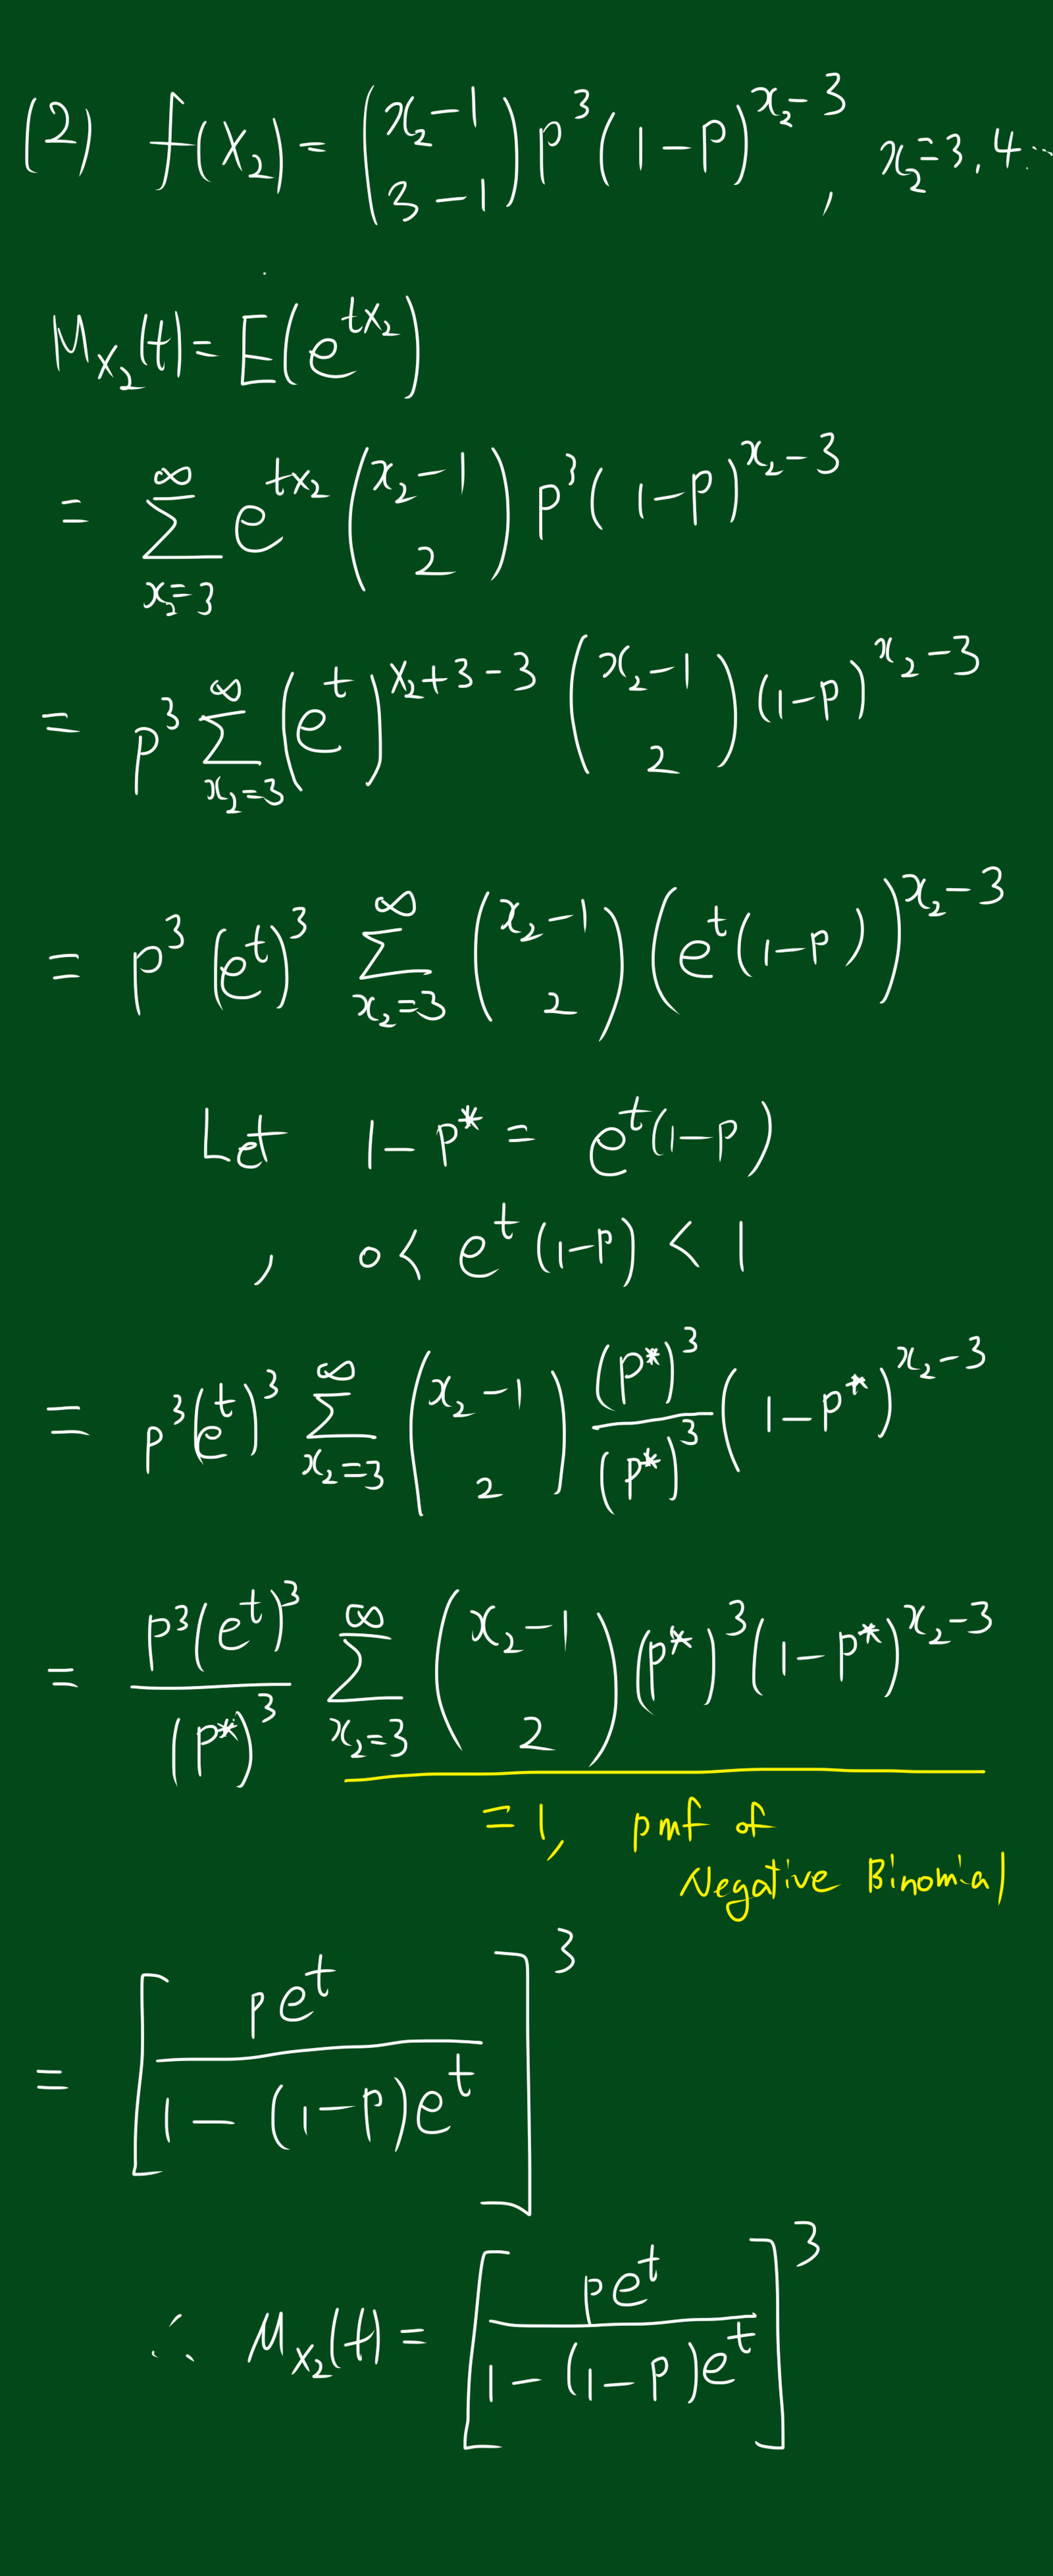 (2) f(X₂) = \binom{x₂-1}{3-1} p³ (1-p)^{x₂-3}, x₂=3,4...
M_{X₂}(t) = E(e^{tX₂})
= \sum_{x₂=3}^{∞} e^{tx₂} \binom{x₂-1}{2} p³ (1-p)^{x₂-3}
= p³ \sum_{x₂=3}^{∞} (e^t)^{x₂+3-3} \binom{x₂-1}{2} (1-p)^{x₂-3}
= p³ (e^t)³ \sum_{x₂=3}^{∞} \binom{x₂-1}{2} (e^t(1-p))^{x₂-3}
Let 1-p* = e^t(1-p)
, 0< e^t(1-p) < 1
= p³(e^t)³ \sum_{x₂=3}^{∞} \binom{x₂-1}{2} \frac{(p*)³}{(p*)³} (1-p*)^{x₂-3}
= \frac{p³(e^t)³}{(p*)³} \sum_{x₂=3}^{∞} \binom{x₂-1}{2} (p*)³ (1-p*)^{x₂-3}
=1, pmf of
Negative Binomial
= [\frac{pe^t}{1-(1-p)e^t}]³
∴ M_{X₂}(t) = [\frac{pe^t}{1-(1-p)e^t}]³